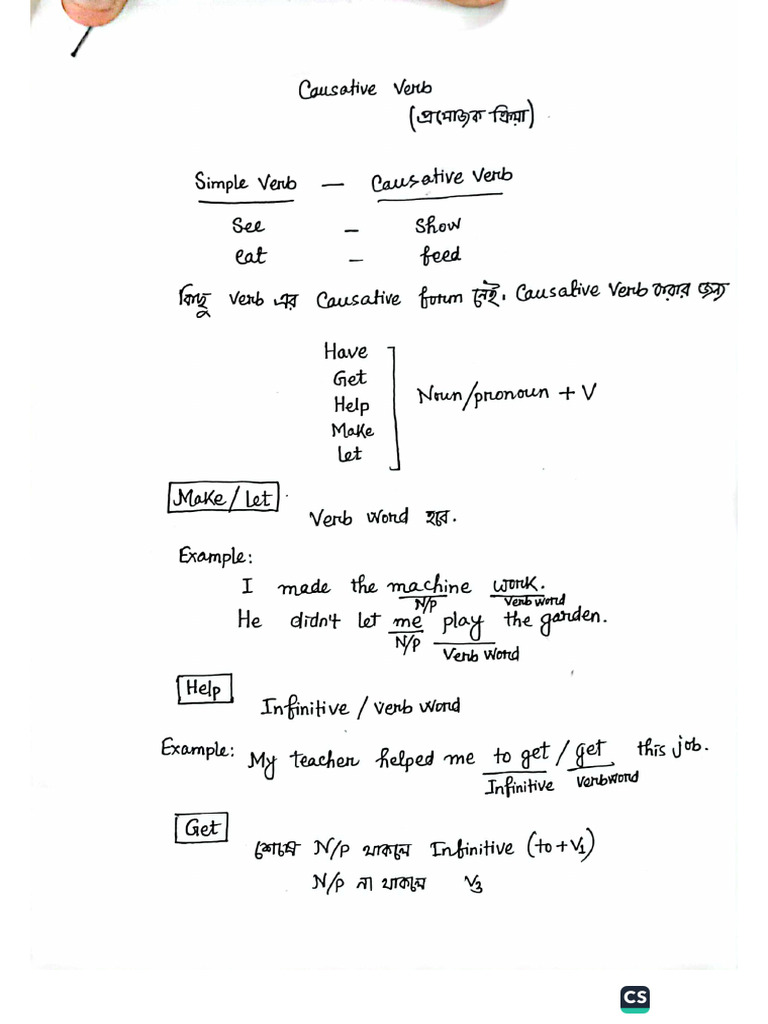 Causative Verb
(প্রযোজক ক্রিয়া)
Simple Verb — Causative Verb
See – Show
eat – feed
কিছু verb এর Causative form নেই। Causative Verb করার জন্য
Have
Get
Help
Make
Let
Noun/pronoun + V
Make/Let
Verb word হবে.
Example:
I made the machine work.
N/P Verb word
He didn't let me play the garden.
N/P Verb Word
Help
Infinitive / verb word
Example: My teacher helped me to get / get this job.
Infinitive Verbword
Get
শেষে N/P থাকলে Infinitive (to+V1)
N/P না থাকলে V3
CS